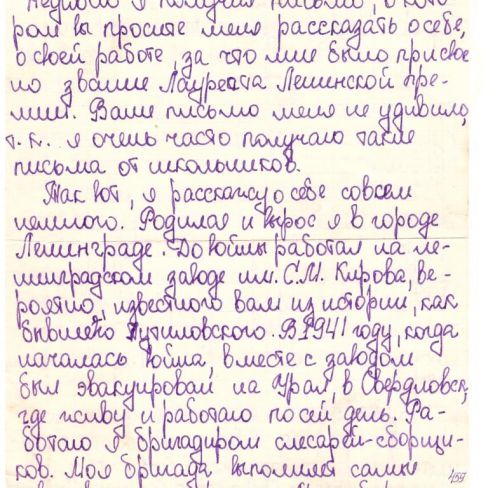 Недавно я получил письмо, в кото-
ром вы просите меня рассказать о себе,
о своей работе, за что мне было присвое
но звание Лауреата Ленинской пре-
мии. Ваше письмо меня не удивило,
т.к. я очень часто получаю такие
письма от школьников.
Так вот, я расскажу о себе совсем
немного. Родился и вырос я в городе
Ленинграде. До войны работал на ле-
нинградском заводе им. С.М. Кирова, ве-
роятно, известного вам из истории, как
бывшего Путиловского. В 1941 году, когда
началась война, вместе с заводом
был эвакуирован на Урал, в Свердловск,
где живу и работаю по сей день. Ра-
ботаю я бригадиром слесарей-сборщи-
ков. Моя бригада выполняет самые